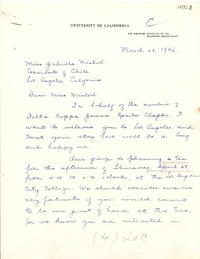 UNIVERSITY OF CALIFORNIA
March 20, 1946
Miss Gabriela Mistral
Consulate of Chile
Los Angeles California
Dear Miss Mistral:
In behalf of the members of
Delta Kappa Gamma, Chapter, I
want to welcome you to Los Angeles and
trust your stay here will be a long
and happy one.
Our group is planning a tea
for the afternoon of
from to o'clock, at the Los Angeles
City College. We should consider ourselves
very fortunate if you would consent
to be our guest of honor at this tea,
for we know you are interested in